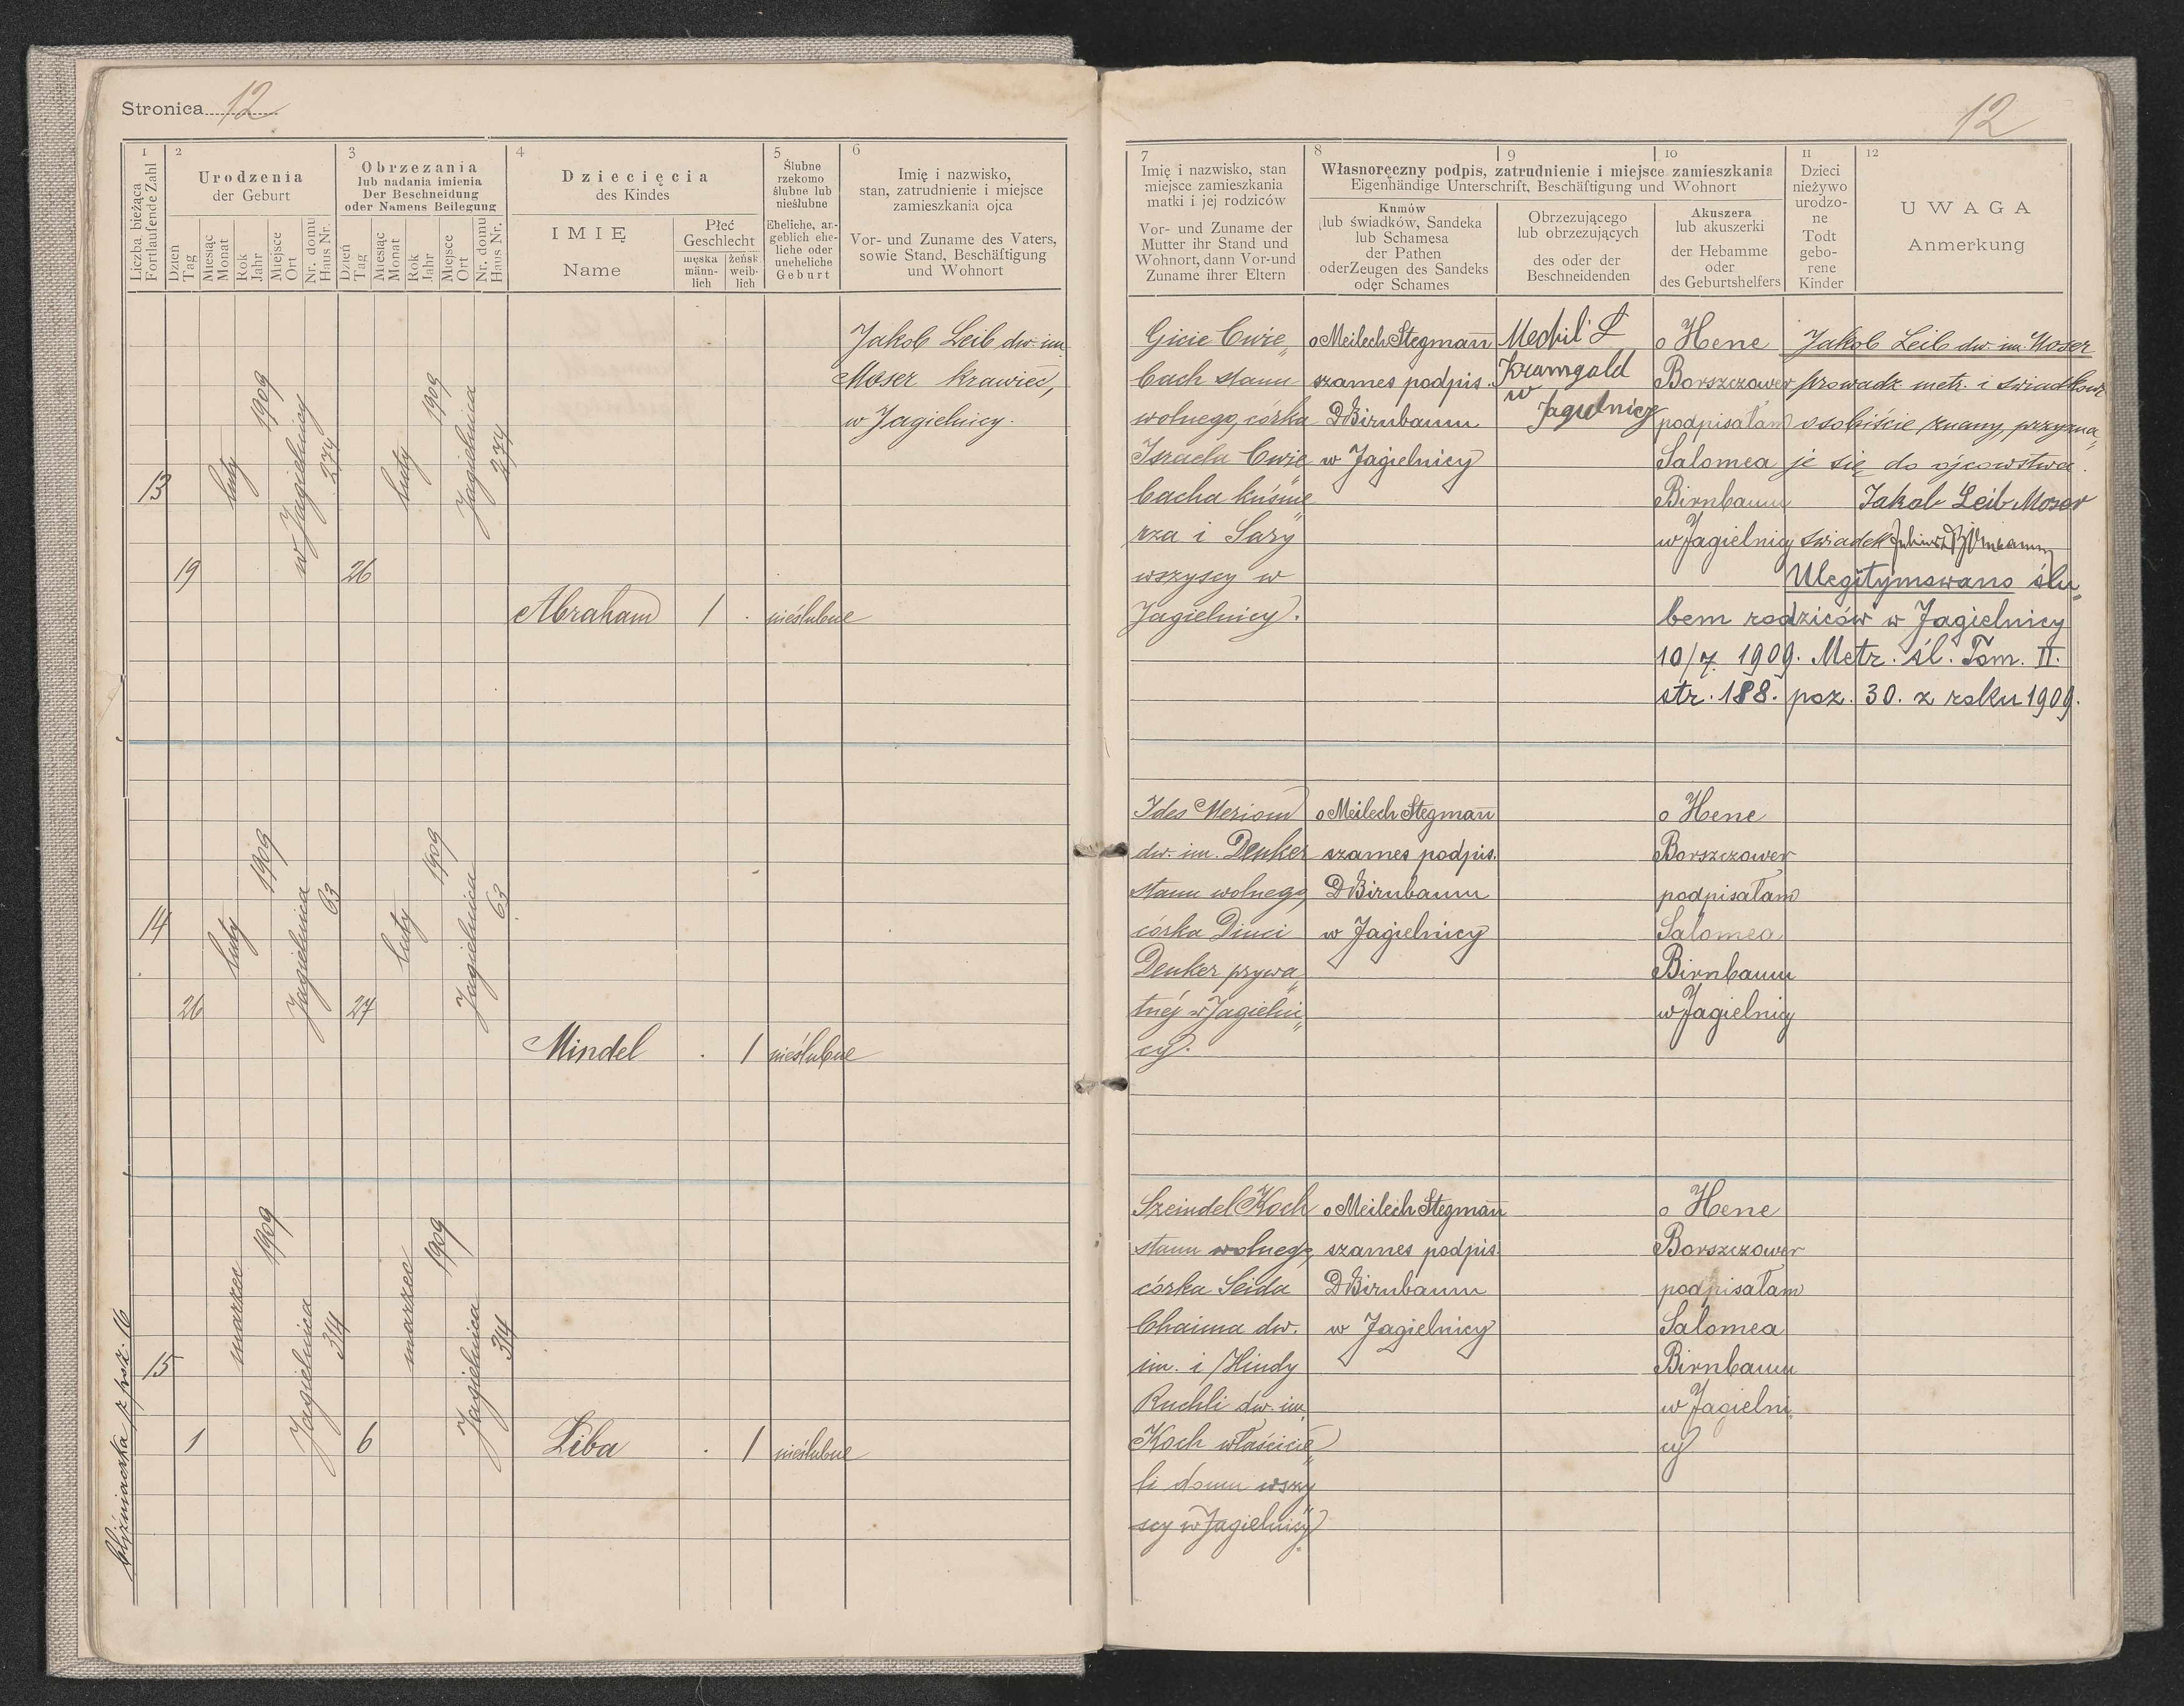 Stronica 12
12
1
Liczba bieżąca
Fortlaufende Zahl
2
Urodzenia
der Geburt
Dzień
Tag
Miesiąc
Monat
Rok
Jahr
Miejsce
Ort
Nr. domu
Haus Nr.
3
Obrzezania
lub nadania imienia
Der Beschneidung
oder Namens Beilegung
Dzień
Tag
Miesiąc
Monat
Rok
Jahr
Miejsce
Ort
Nr. domu
Haus Nr.
4
Dziecięcia
des Kindes
IMIĘ
Name
Płeć
Geschlecht
męska
männ-
lich
żeńsk.
weib-
lich
5
Ślubne
rzekomo
ślubne lub
nieślubne
Eheliche, an-
geblich ehe-
liche oder
uneheliche
Geburt
6
Imię i nazwisko,
stan, zatrudnienie i miejsce
zamieszkania ojca
Vor- und Zuname des Vaters,
sowie Stand, Beschäftigung
und Wohnort
7
Imię i nazwisko, stan
miejsce zamieszkania
matki i jej rodziców
Vor- und Zuname der
Mutter ihr Stand und
Wohnort, dann Vor-und
Zuname ihrer Eltern
8
9
10
Własnoręczny podpis, zatrudnienie i miejsce zamieszkania
Eigenhändige Unterschrift, Beschäftigung und Wohnort
Kumów
lub świadków, Sandeka
lub Schamesa
der Pathen
oder Zeugen des Sandeks
oder Schames
Obrzezującego
lub obrzezujących
des oder der
Beschneidenden
Akuszera
lub akuszerki
der Hebamme
oder
des Geburtshelfers
11
Dzieci
nieżywo
urodzo-
ne
Todt
gebo-
rene
Kinder
12
UWAGA
Anmerkung
13
19
luty
1909
w Jagielnicy
274
26
luty
1909
Jagielnica
274
Abraham
1
.
nieślubne
Jakob Leib dw. im.
Moser krawiec,
w Jagielnicy.
Gicie Cwie„
bach stanu
wolnego, córka
Israela Cwie„
bacha kuśnie„
rza i Sary
wszyscy w
Jagielnicy.
o Meilech Stegmann
szames podpis.
D Birnbaum
w Jagielnicy
Mechil L
Kramgold
w
Jagielnicy
o Hene
Borszczower
podpisałam
Salomea
Birnbaum
w Jagielnicy
Jakob Leib dw. im. Moser
prowadz. metr. i swiadkowi
osobiście znany, przyzna„
je się do ojcowstwa.
Jakob Leib Moser
świadek
Ulegitymowano ślu„
bem rodziców w Jagielnicy
10/7. 1909. Metr. śl. Tom. II.
str. 188. poz. 30. z roku 1909.
14
26
luty
1909
Jagielnica
63
27
luty
1909
Jagielnica
63
Mindel
.
1
nieślubne
Ides Meriom
dw. im. Denker
stanu wolnego,
córka Dinci
Denker prywa„
tnéj w Jagielni„
cy.
o Meilech Stegmann
szames podpis.
D Birnbaum
w Jagielnicy
o Hene
Borszczower
podpisałam
Salomea
Birnbaum
w Jagielnicy
bliźniaczka z poz. 16
15
1
marzec
1909
Jagielnica
314
6
marzec
1909
Jagielnica
314
Liba
.
1
nieślubne
Szeindel Koch
stanu wolnego,
córka Seida
Chaima dw.
im. i Hindy
Ruchli dw. im.
Koch właścicie„
li domu wszy„
scy w Jagielnicy.
o Meilech Stegmann
szames podpis.
D Birnbaum
w Jagielnicy
o Hene
Borszczower
podpisałam
Salomea
Birnbaum
w Jagielni„
cy